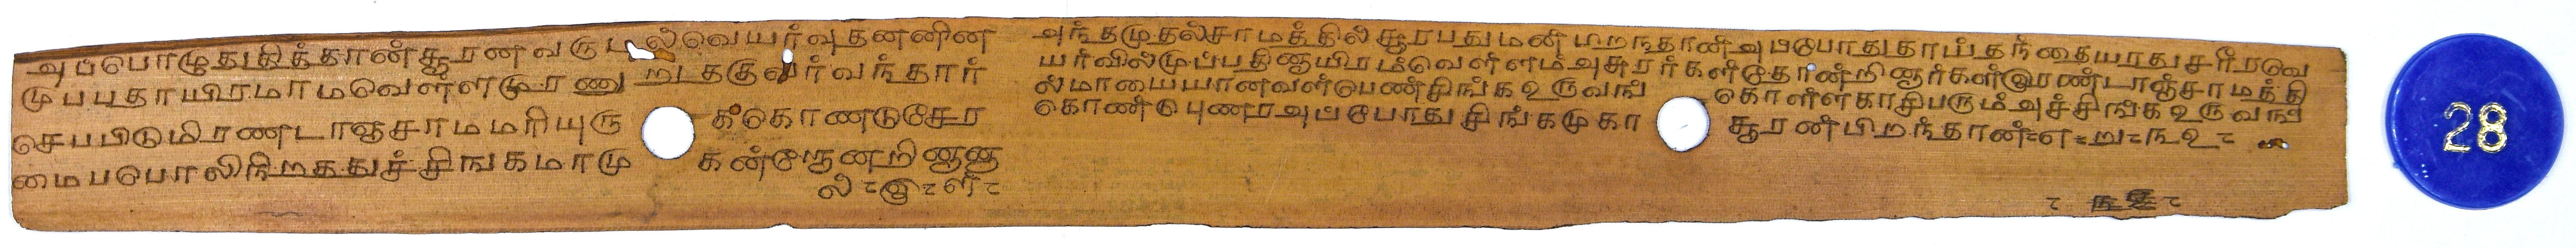 அப்பொழுதுதித்தான்சூரனவருடல்வெயர்வுதனனின
முபபுதாயிரமாமவெள்ளசூரணு றுடதகுவர்வந்தார்
செபபிடுமிரணடாஞசாமமரியுரு கங்கொணடுசேர
மைபபொலிநிறதததுச்சிஙகமாமு கன்றேனறினான
அந்தமுதல்சாமத்தில்சூரபதுமன் பிறநதான்அப்போதுதாய்தந்தையரதுசரீரவெ
யர்வில்முப்பதினாயிரம்வெள்ளம்அசுரர்கள்தோன்றினார்கள்இரண்டாஞ்சாமத்தி
ல்மாயையானவள்பெண்சிங்கஉருவங் கொள்ளகாசிபரும்அச்சிங்கஉருவங்
கொண்டுபுணரஅப்போதுசிங்கமுகா சூரன்பிறந்தான்
28